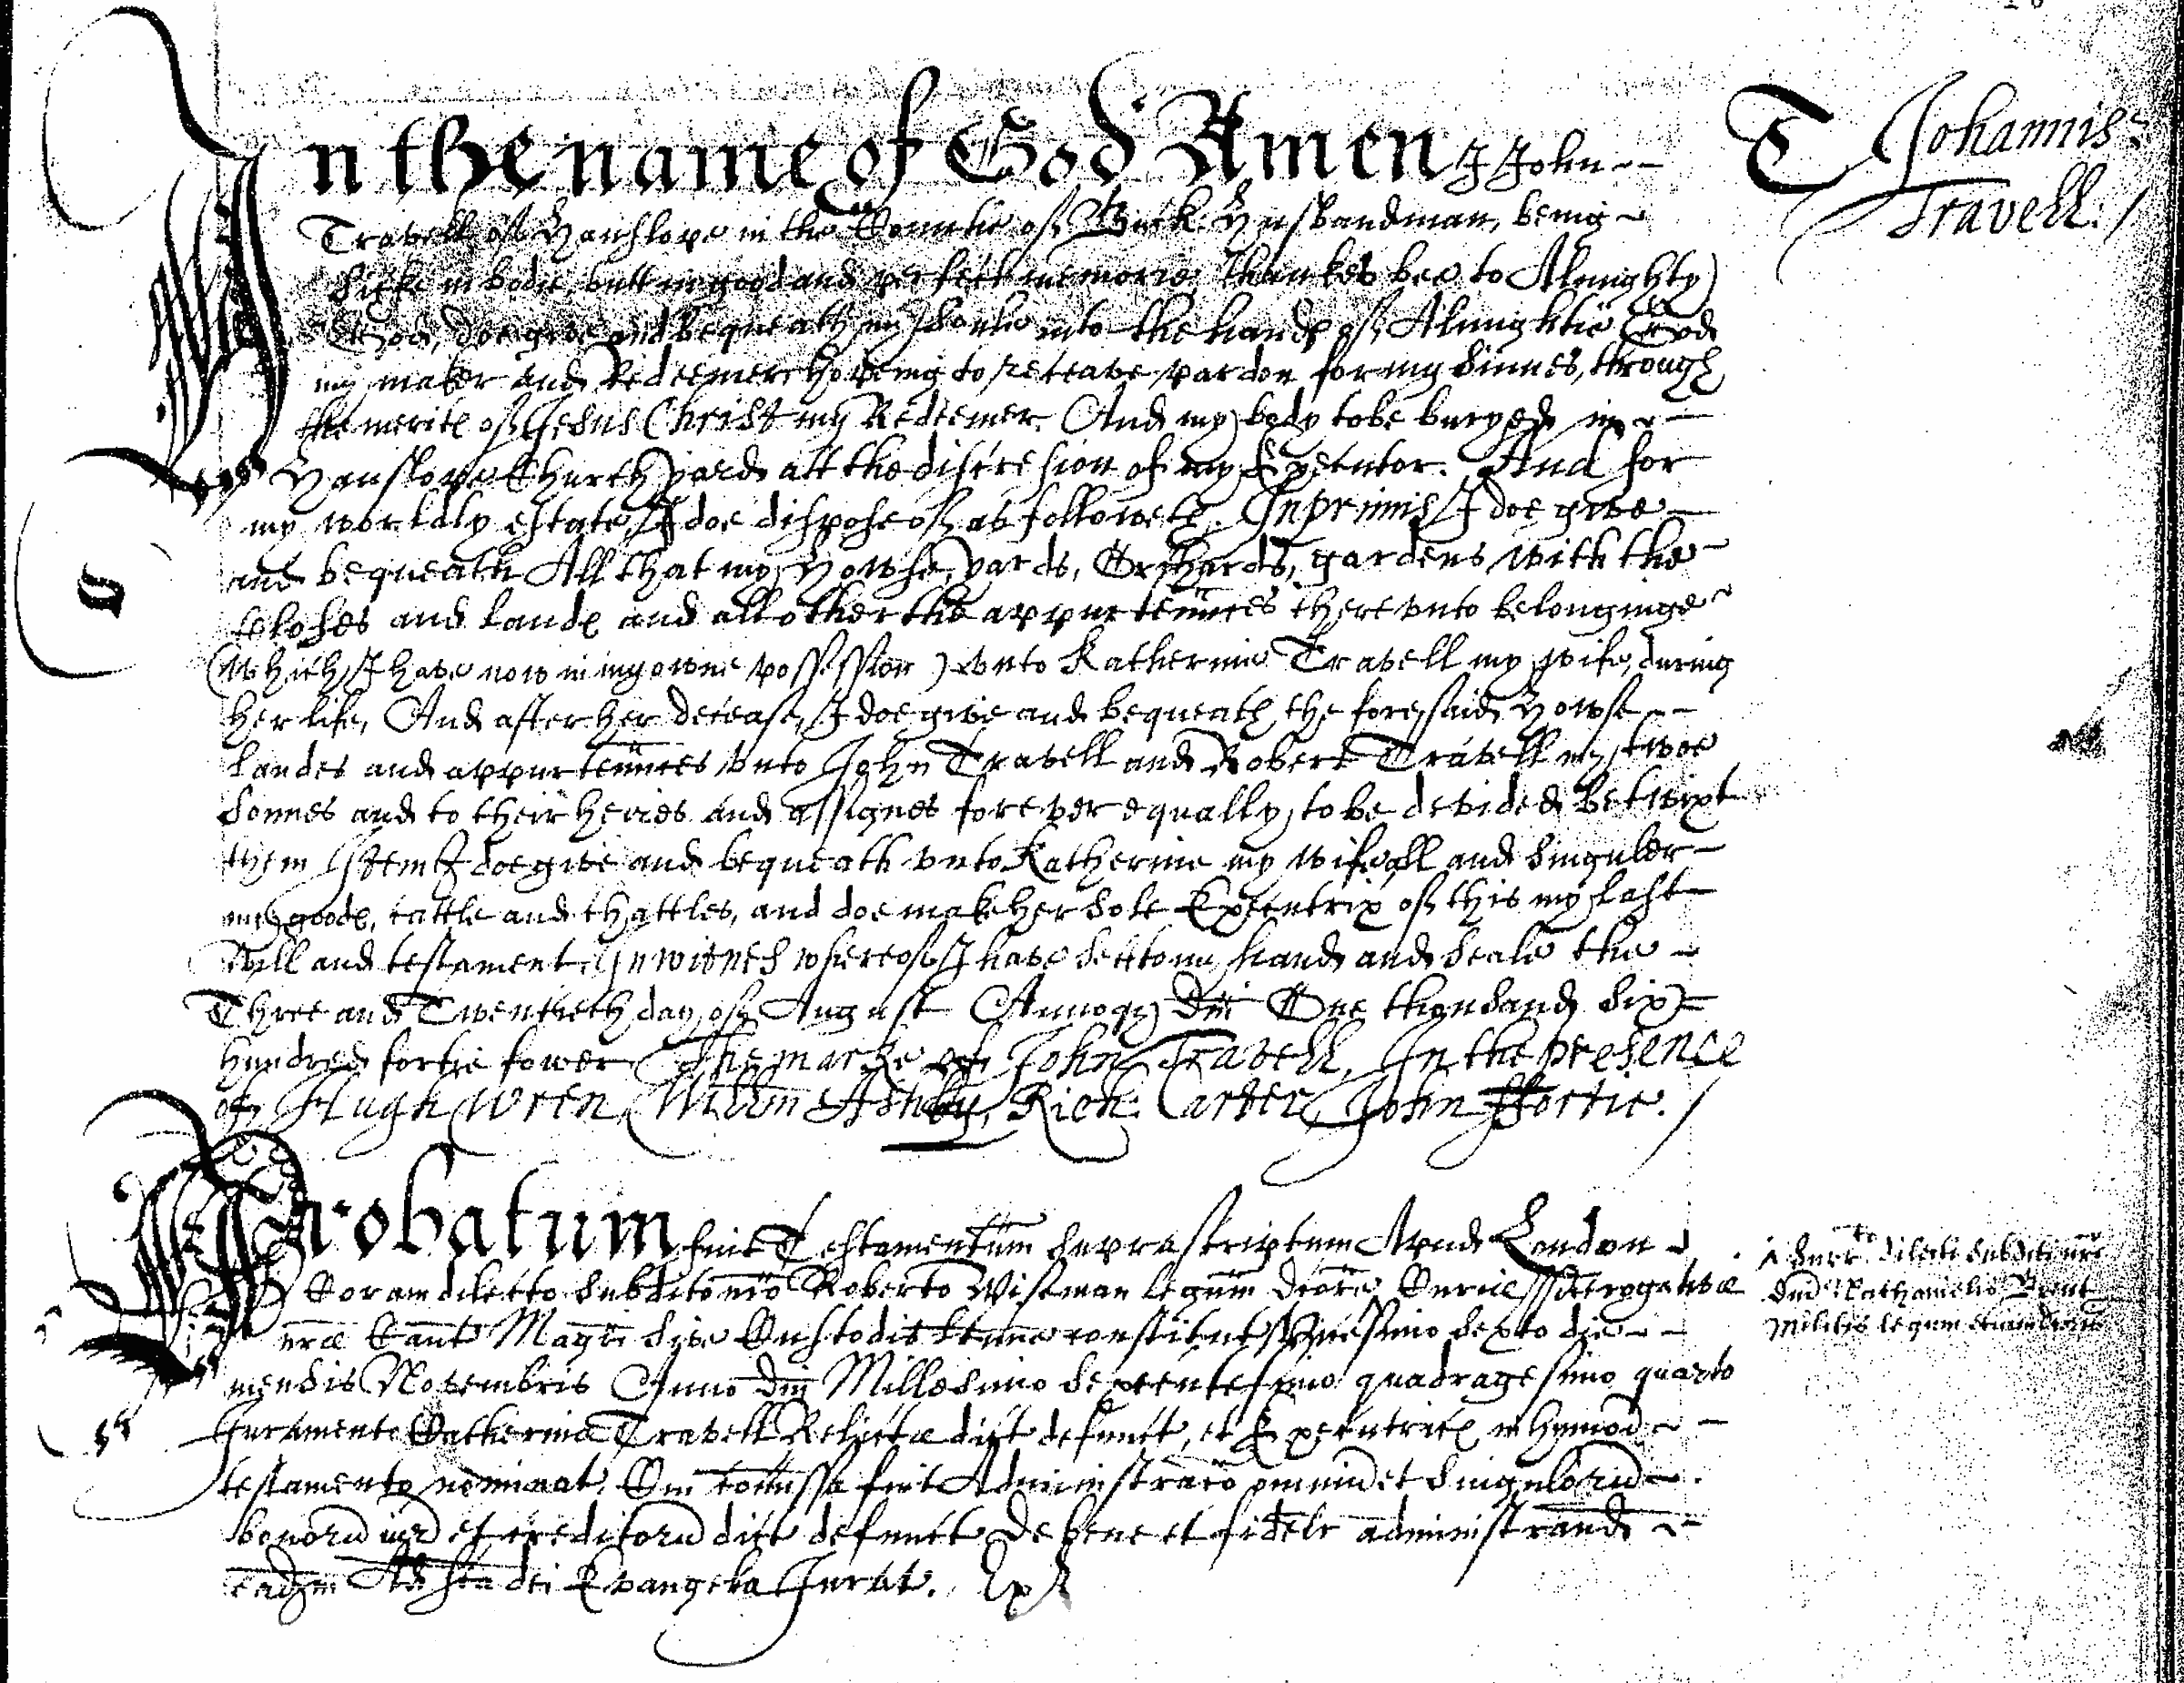 T Johannis
Travell./
In the name of God Amen I John
Travell of Hanslope in the Countie of Buck Husbandman, being
sicke in bodie, butt in good and perfect memorie, thankes bee to Almighty
God, doe give and bequeath my Soule into the hands of Almightie God
my maker and Redeemer hopeing to receave pardon for my sinnes, through
the merits of Jesus Christ my Redeemer. And my body to be buryed in
Hanslope Church yard att the discresion of my Executor. And for
my worldly estate, I doe dispose of as followeth. Inprimis I doe give
and bequeath All that my Howse, yards, Orchards, gardens with the
closes and lands and all other the appurtennces there vnto belonginge
(which I have now in my owne possession) vnto Katherine Travell my wife, during
her life, And after her decease, I doe give and bequeath the foresaid Howse
Landes and appurtennces vnto John Travell and Robert Travell my twoe
sonnes and to their heires and assignes forever equally to be devided betwixt
them Item I doe give and bequeath vnto Katherine my wife all and singuler
my goods, cattle and chattles, and doe make her sole Executrix of this my last
Will and testament. In witnes whereof I have sett to my hand and seale the
Three and Twentieth day of August Annoqz Dni One thousand six
hundred fortie fower The marke of John Travell, In the presence
of Hugh Wren, Willm Ashby, Rich: Carter, John ffortie./
Probatum fuit Testamentum suprascriptum Apud London
Coram dilecto subdito nro Roberto Wiseman legum dcore Curie Prerogative
nre Cant Magri sive Custodis ltime constitut Vicesimo sexto die
mensis Novembris Anno Dni Millesimo sexcentesimo quadragesimo quarto
Juramento Catherine Travell Relicte dict defunct, et Executrics in hmoi
testamento nominat. Cui comissa fuit Administraco omniu et singuloru
bonoru iur et creditoru dict defunct De bene et fidelr administrand
eadem Ad sca dei Evangelia Jurat. Ex
Surr. dilecti subditi nri
Dni Nathanielis Brent
Militis legum etiam dcoris